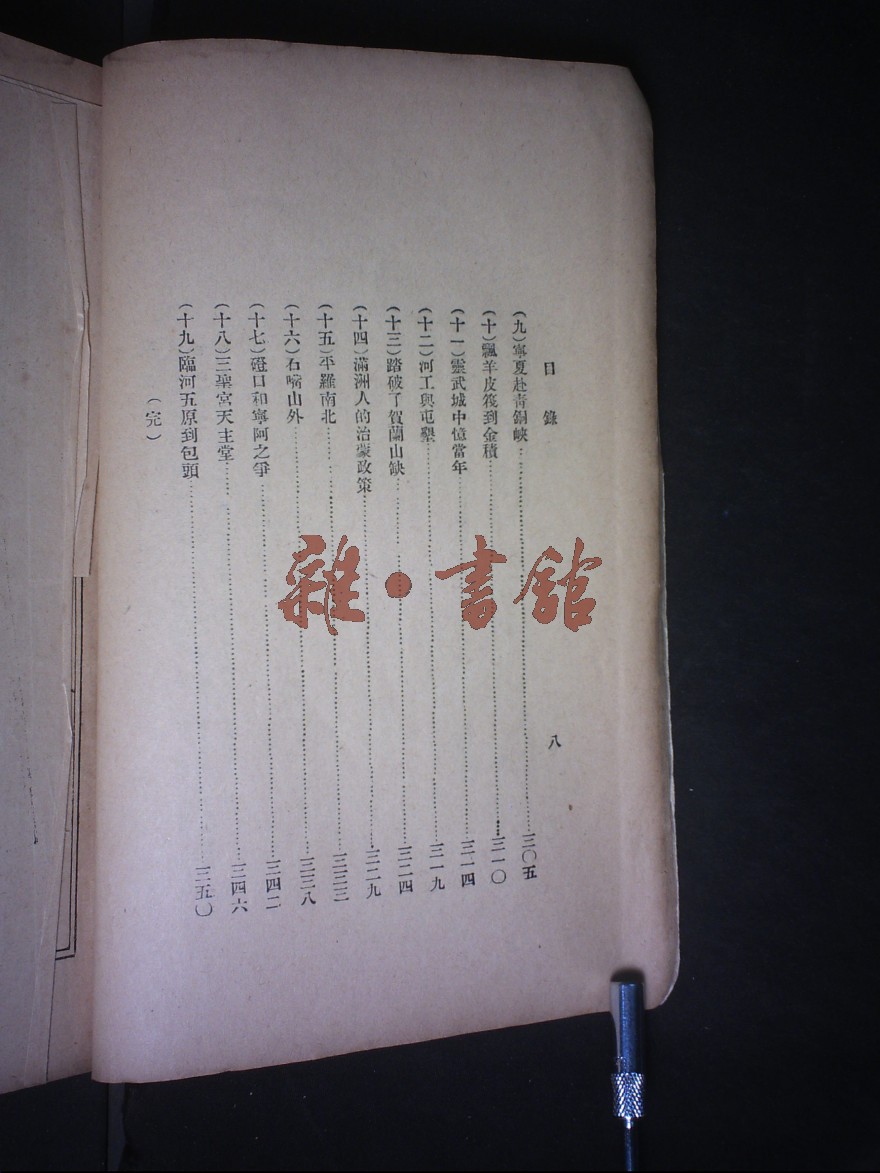 目錄 八
(九)寧夏赴青銅峽……三〇五
(十)飄羊皮筏到金積……三一〇
(十一)靈武城中憶當年……三一四
(十二)河工與屯墾……三一九
(十三)踏破了賀蘭山缺……三二四
(十四)滿洲人的治蒙政策……三二九
(十五)平羅南北……三三三
(十六)石嘴山外……三三八
(十七)磴口和寧阿之爭……三四二
(十八)三聖宮天主堂……三四六
(十九)臨河五原到包頭……三五〇
(完)
雜·書館